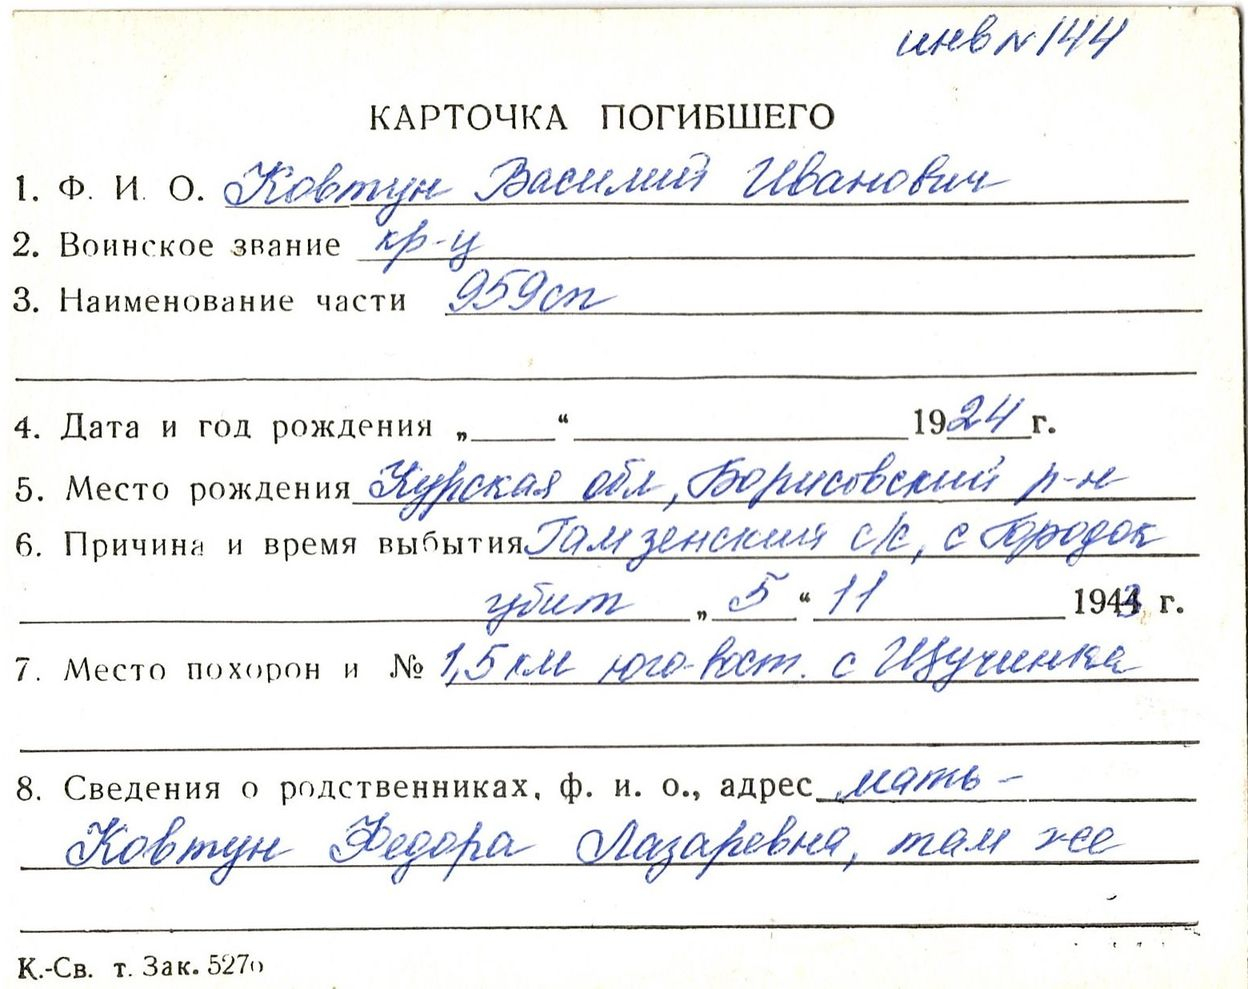 инв № 144
КАРТОЧКА ПОГИБШЕГО
1. Ф. И. О. Ковтун Василий Иванович
2. Воинское звание кр-ц
3. Наименование части 959сп
4. Дата и год рождения „ “ 1924 г.
5. Место рождения Курская обл, Борисовский р-н
6. Причина и время выбытия Гамзенский с/с, с Городок
убит „ 5 “ 11 1943 г.
7. Место похорон и № 1,5 км юго-вост. с Щучинка
8. Сведения о родственниках, ф. и. о., адрес мать -
Ковтун Федора Лазаревна, там же
К.-Св. т. Зак. 5270